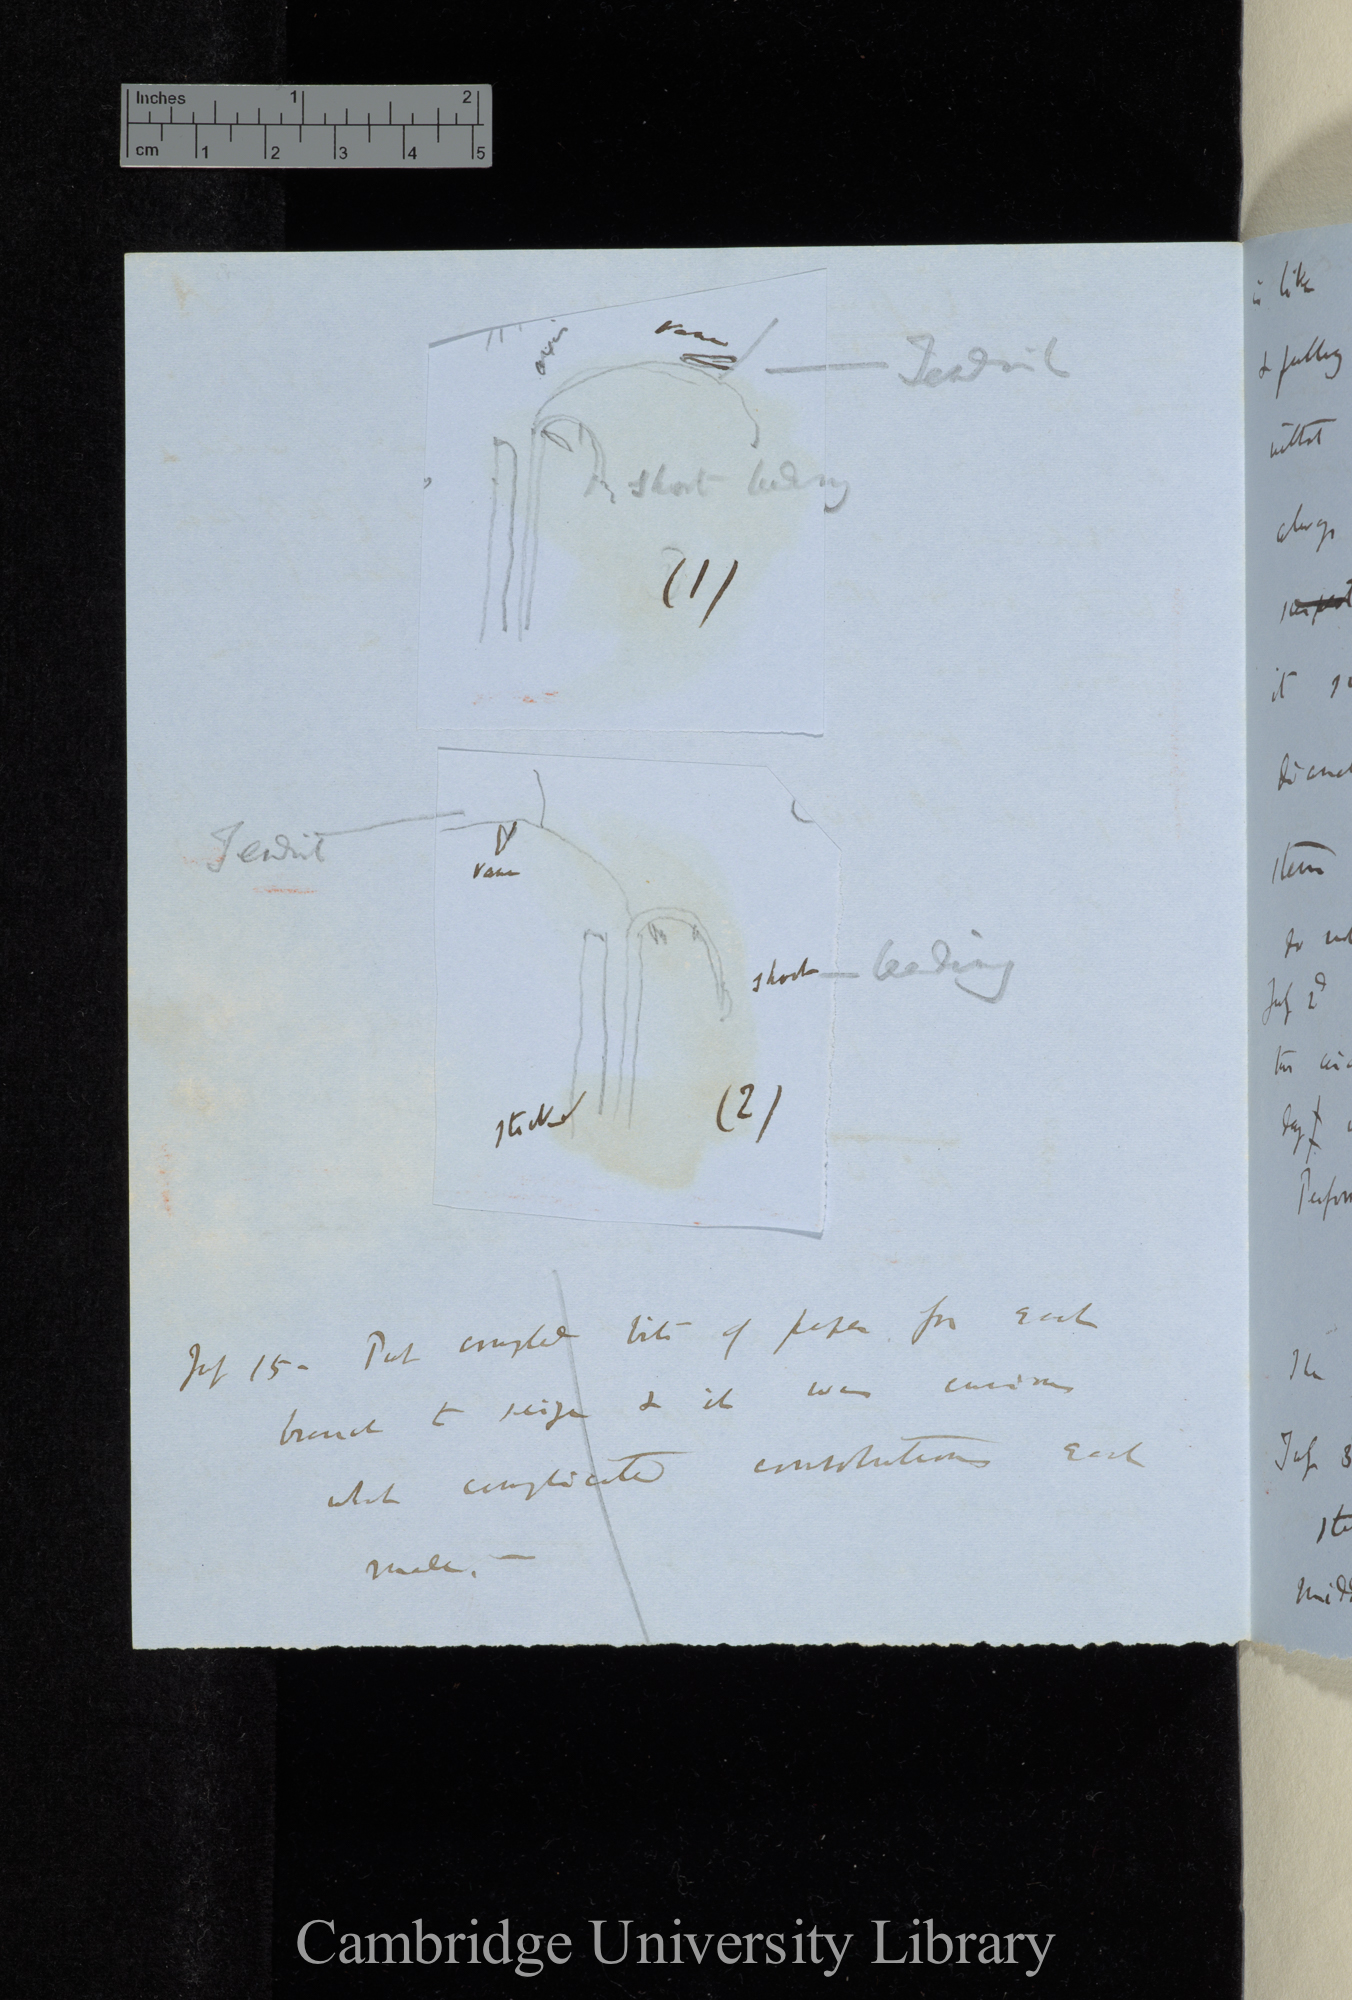 Inches 1 2
cm 1 2 3 4 5
axis
vane
Tendril
short leading
(1)
Tendril
vane
short leading
stick
(2)
July 15 - Put crumpled bits of paper for each
branch to seize & it was curious
what complicated convolutions each
made. —
is like
& pulling
without
always
it
stem
July 2d
day
The
July 8
Cambridge University Library